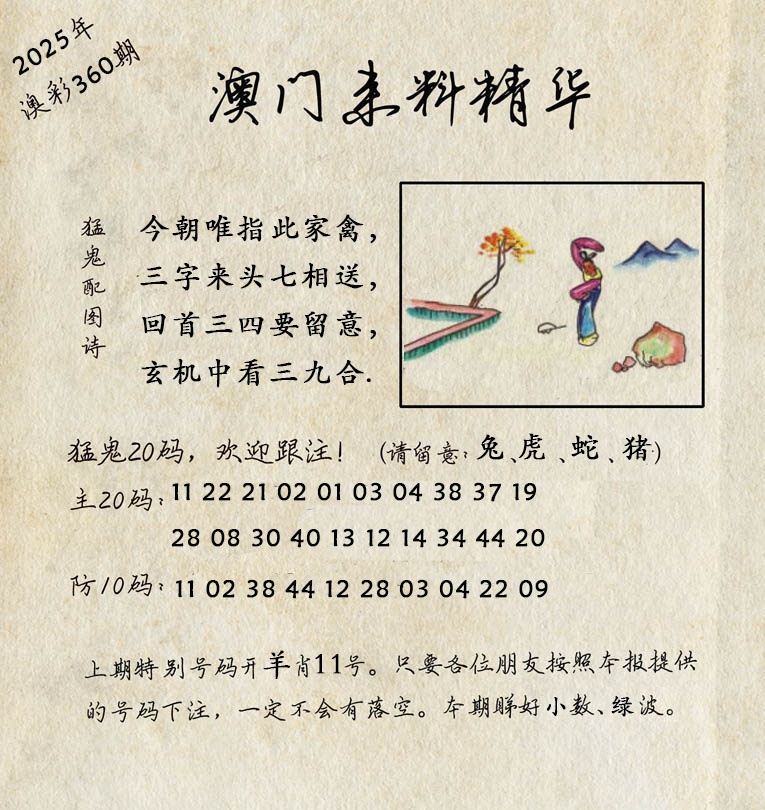 2025年
澳彩360期
澳门来料精华
猛鬼配图诗
今朝唯指此家禽，
三字来头七相送，
回首三四要留意，
玄机中看三九合.
猛鬼20码，欢迎跟注！（请留意：兔、虎、蛇、猪）
主20码：11 22 21 02 01 03 04 38 37 19
28 08 30 40 13 12 14 34 44 20
防10码：11 02 38 44 12 28 03 04 22 09
上期特别号码开羊肖11号。只要各位朋友按照本报提供
的号码下注，一定不会有落空。本期睇好小数、绿波。